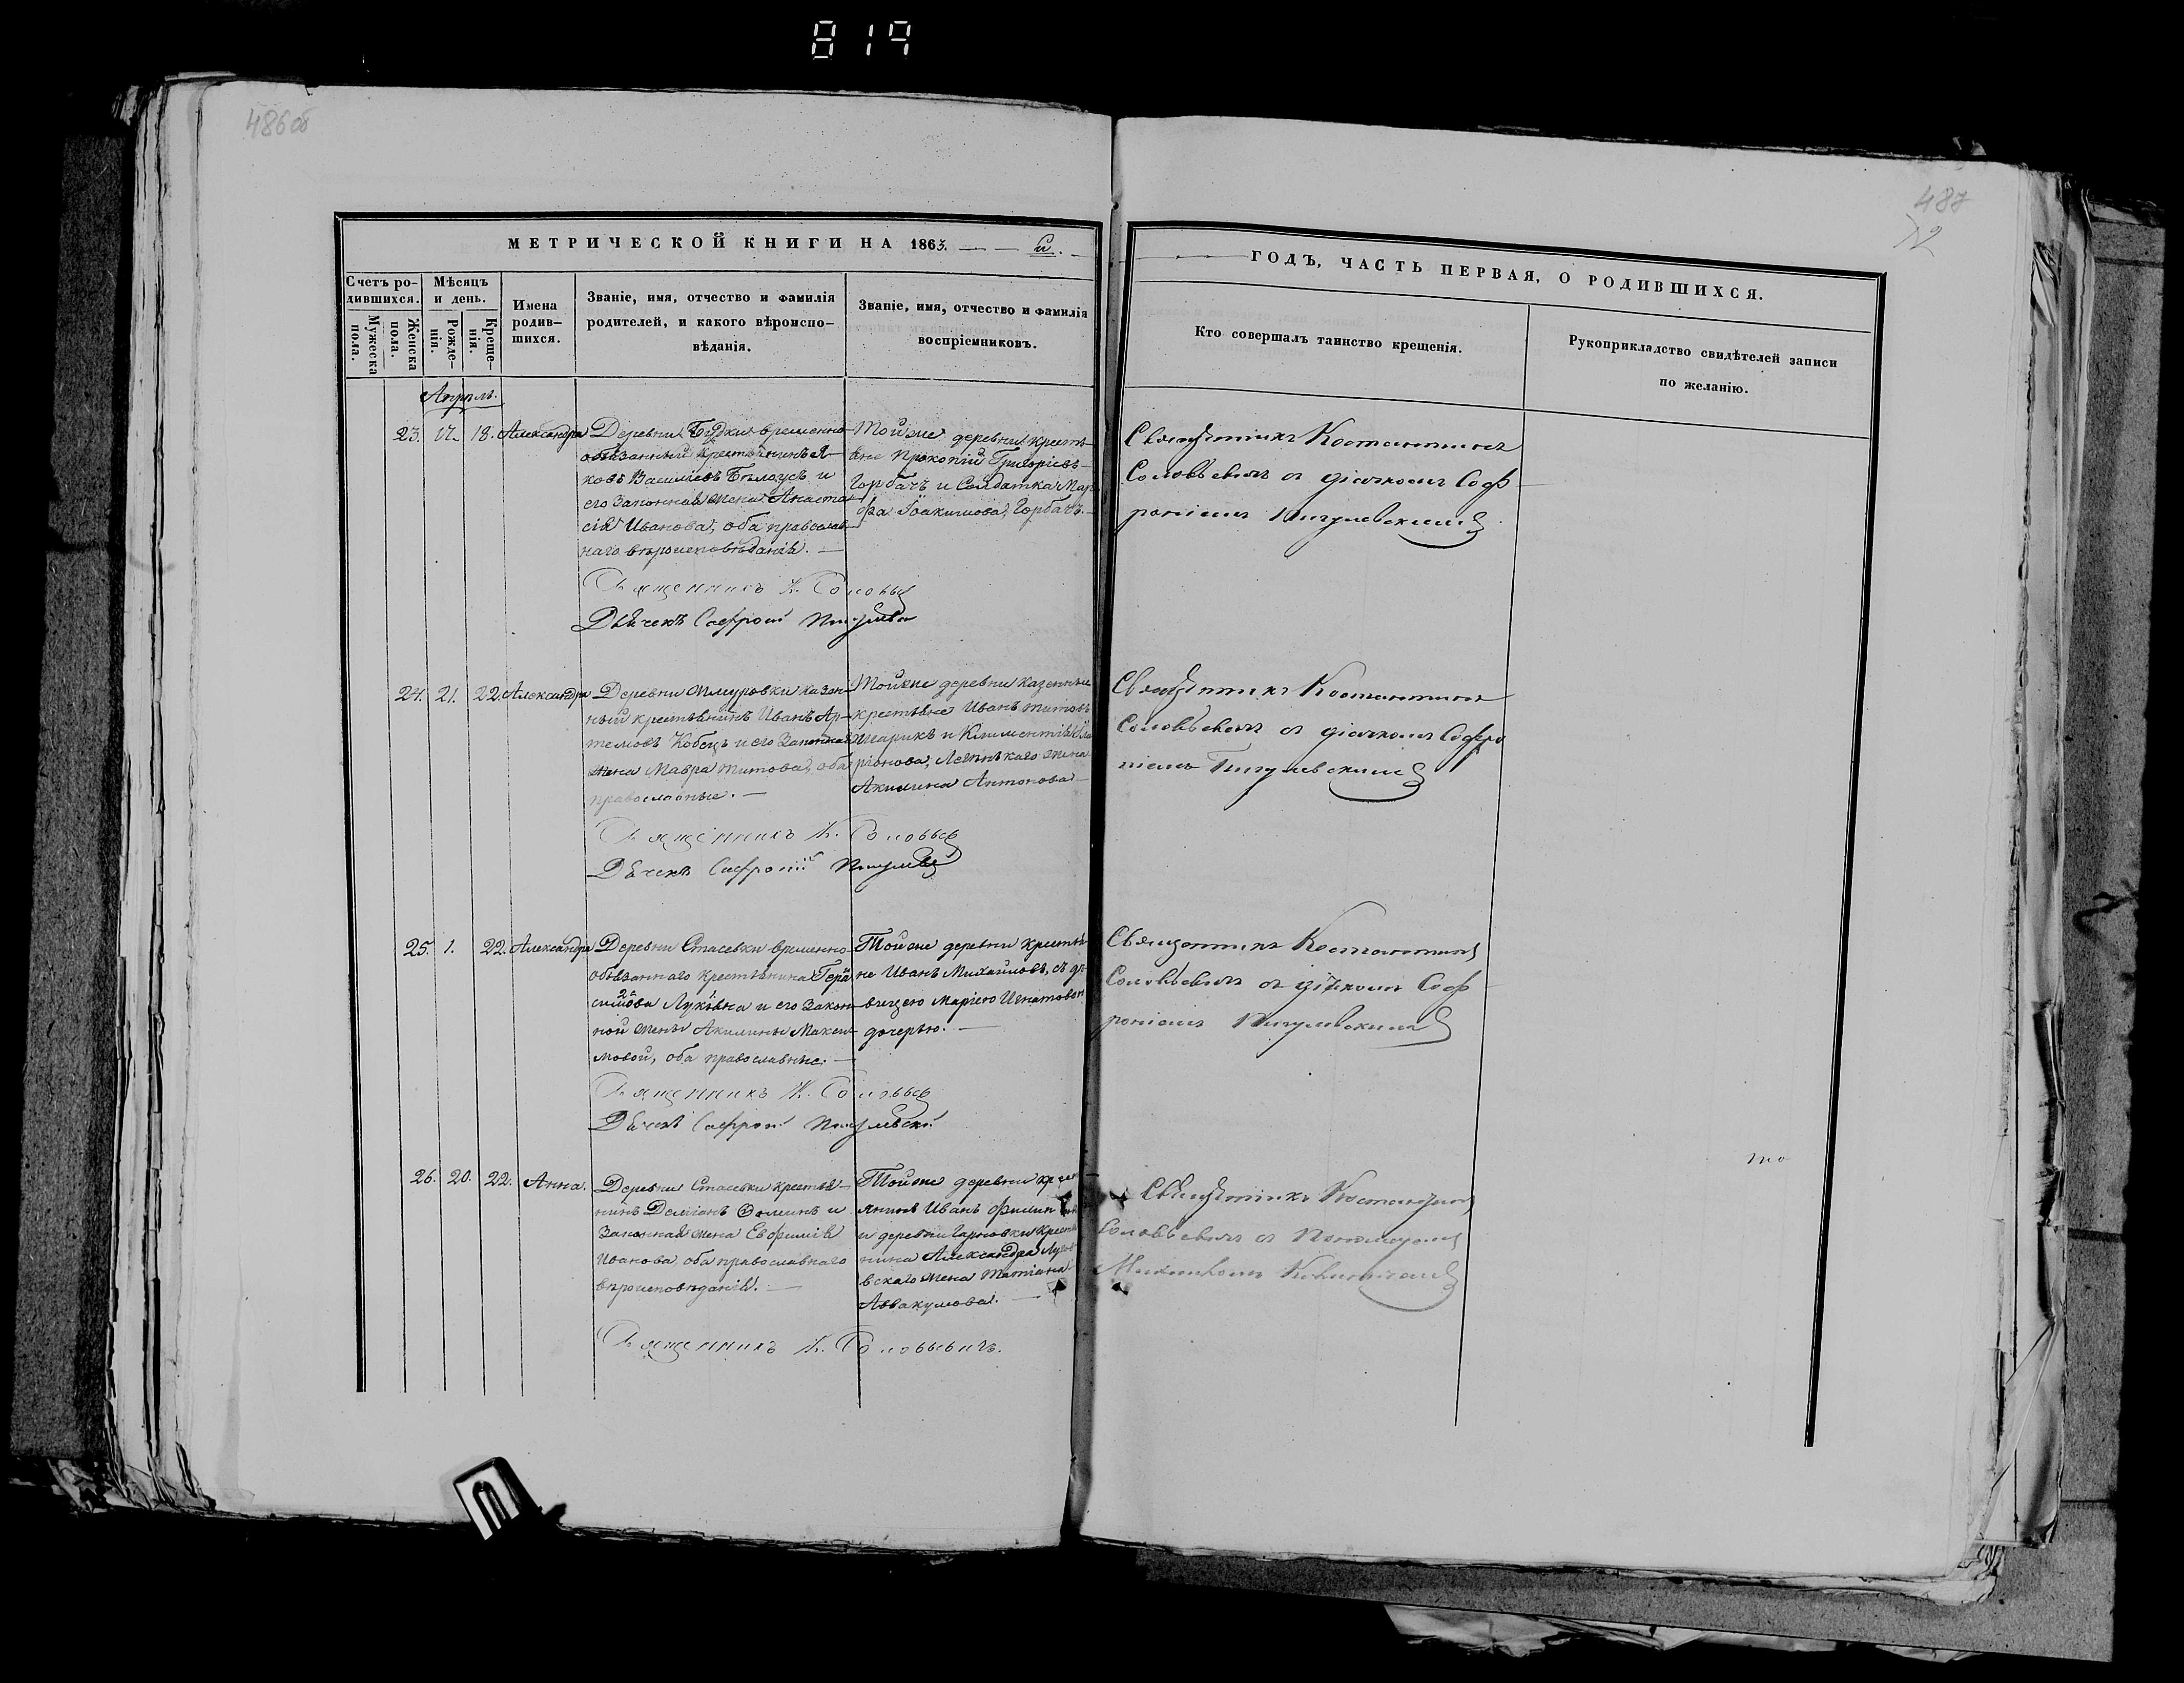 819
486об
487
МЕТРИЧЕСКОЙ КНИГИ НА 1863.
ГОДЪ, ЧАСТЬ ПЕРВАЯ, О РОДИВШИХСЯ.
Счетъ ро-
дившихся.
Мужеска
пола.
Женска
пола.
Мѣсяцъ
и день.
Рожде-
нія.
Креще-
нія.
Имена
родив-
шихся.
Званіе, имя, отчество и фамилія
родителей, и какого вѣроиспо-
вѣданія.
Званіе, имя, отчество и фамилія
воспріемниковъ.
Кто совершалъ таинство крещенія.
Рукоприкладство свидѣтелей записи
по желанію.
Апрель.
23. 17. 18. Александра
Деревни временно-
обязанный крестьянинъ Я-
ковъ Василіевъ Бѣлоусъ и
его законная жена Анаста-
сія Иванова, оба православ-
наго вѣроисповѣданія.
Священникъ К. Соловье
Дьячекъ Софроній
Той же деревни крестья-
не Прокопій Григоріевъ
Горбачъ и Солдатка Мар-
фа Іоакимова, Горбачъ.
Священникъ Константинъ
Соловьевичъ съ діачкомъ Соф
роніемъ Пигулевскимъ
24. 21. 22. Александра
Деревни казен-
ный крестьянинъ Иванъ Ар-
темовъ Кобецъ и его законная
жена Мавра Титова, оба
православные.
Священникъ К. Соловьев
Дьячекъ Софроній
Той же деревни казенные
крестьяне Иванъ Титовъ
и Климентія
жена
Акилина Антонова
Священникъ Константинъ
Соловьевичъ съ діачкомъ Софро
ніемъ Пигулевскимъ
25. 1. 22. Александра
Деревни Стасевки временно-
обязаннаго крестьянина Гера
симова Лукьяна и его закон-
ной жены Акилины Макси-
мовой, оба православные.
Священникъ К. Соловьев
Дьячекъ Софроній Пигулевскій
Той же деревни крестья-
не Иванъ Михайловъ, съ дѣ-
вицею Маріею Игнатовою
дочерью.
Священникъ Константинъ
Соловьевичъ съ діачкомъ Соф
роніемъ Пигулевскимъ
26. 20. 22. Анна.
Деревни Стасевки крестья-
нинъ Даміанъ Ѳоминъ и
Законная жена Евфимія
Иванова, оба православнаго
вѣроисповѣданія.
Священникъ К. Соловьевичъ.
Той же деревни крест
янинъ Иванъ Филип
и деревни Гарновки Крестья
нина Александра
вскаго жена Татіана
Аввакумова.
Священникъ Константинъ
Соловьевичъ съ Пономаремъ